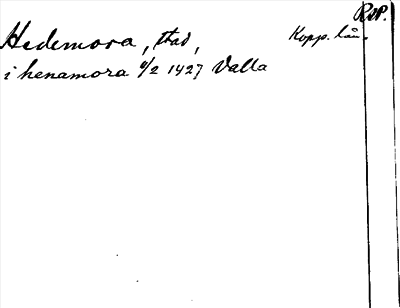 RAP.
Hedemora, stad, Kopp. län.
i henamora 6/2 1427 Valla